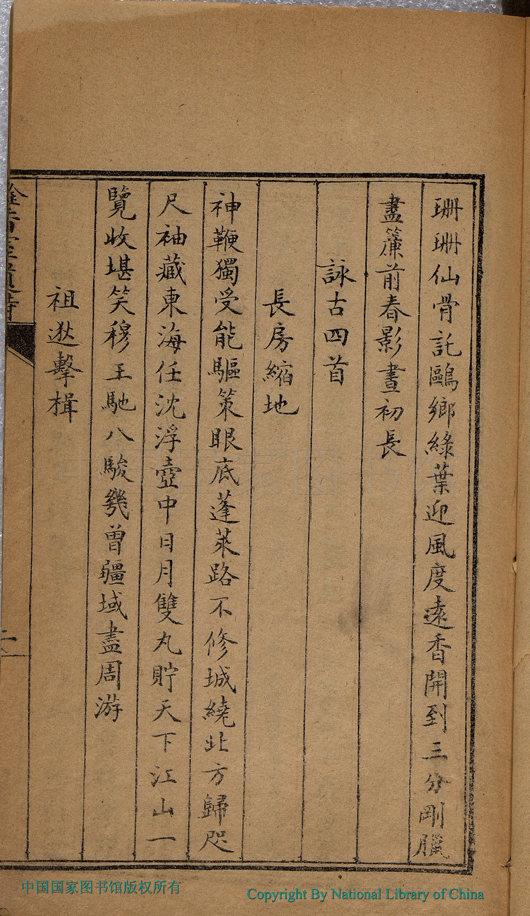 珊珊仙骨託鷗鄉綠葉迎風度遠香開到三分剛臘
盡簾前春影晝初長
詠古四首
長房縮地
神鞭獨受能驅策眼底蓬萊路不修城繞北方歸咫
尺袖藏東海任沈浮壺中日月雙丸貯天下江山一
覽收堪笑穆王馳八駿幾曾疆域盡周游
祖逖擊楫
二
中国国家图书馆版权所有
Copyright By National Library of China